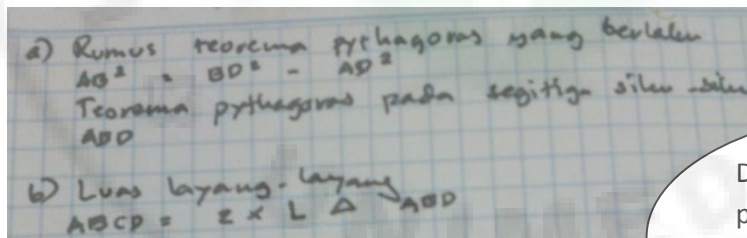 a) Rumus teorema pythagoras yang berlaku
AB² = BD² - AD²
Teorema pythagoras pada segitiga siku-siku
ABD
b) Luas layang-layang
ABCD = 2 × L Δ ABD
D
p